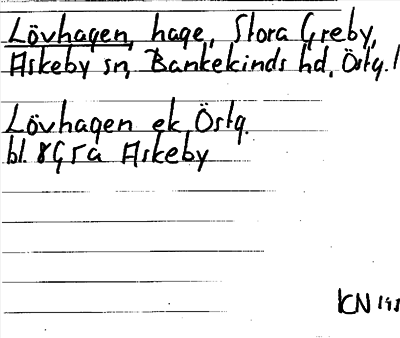 Lövhagen, hage, Stora Greby,
Askeby sn, Bankekinds hd, Östg.
Lövhagen ek Östg.
bl. 8G5a Askeby
KN